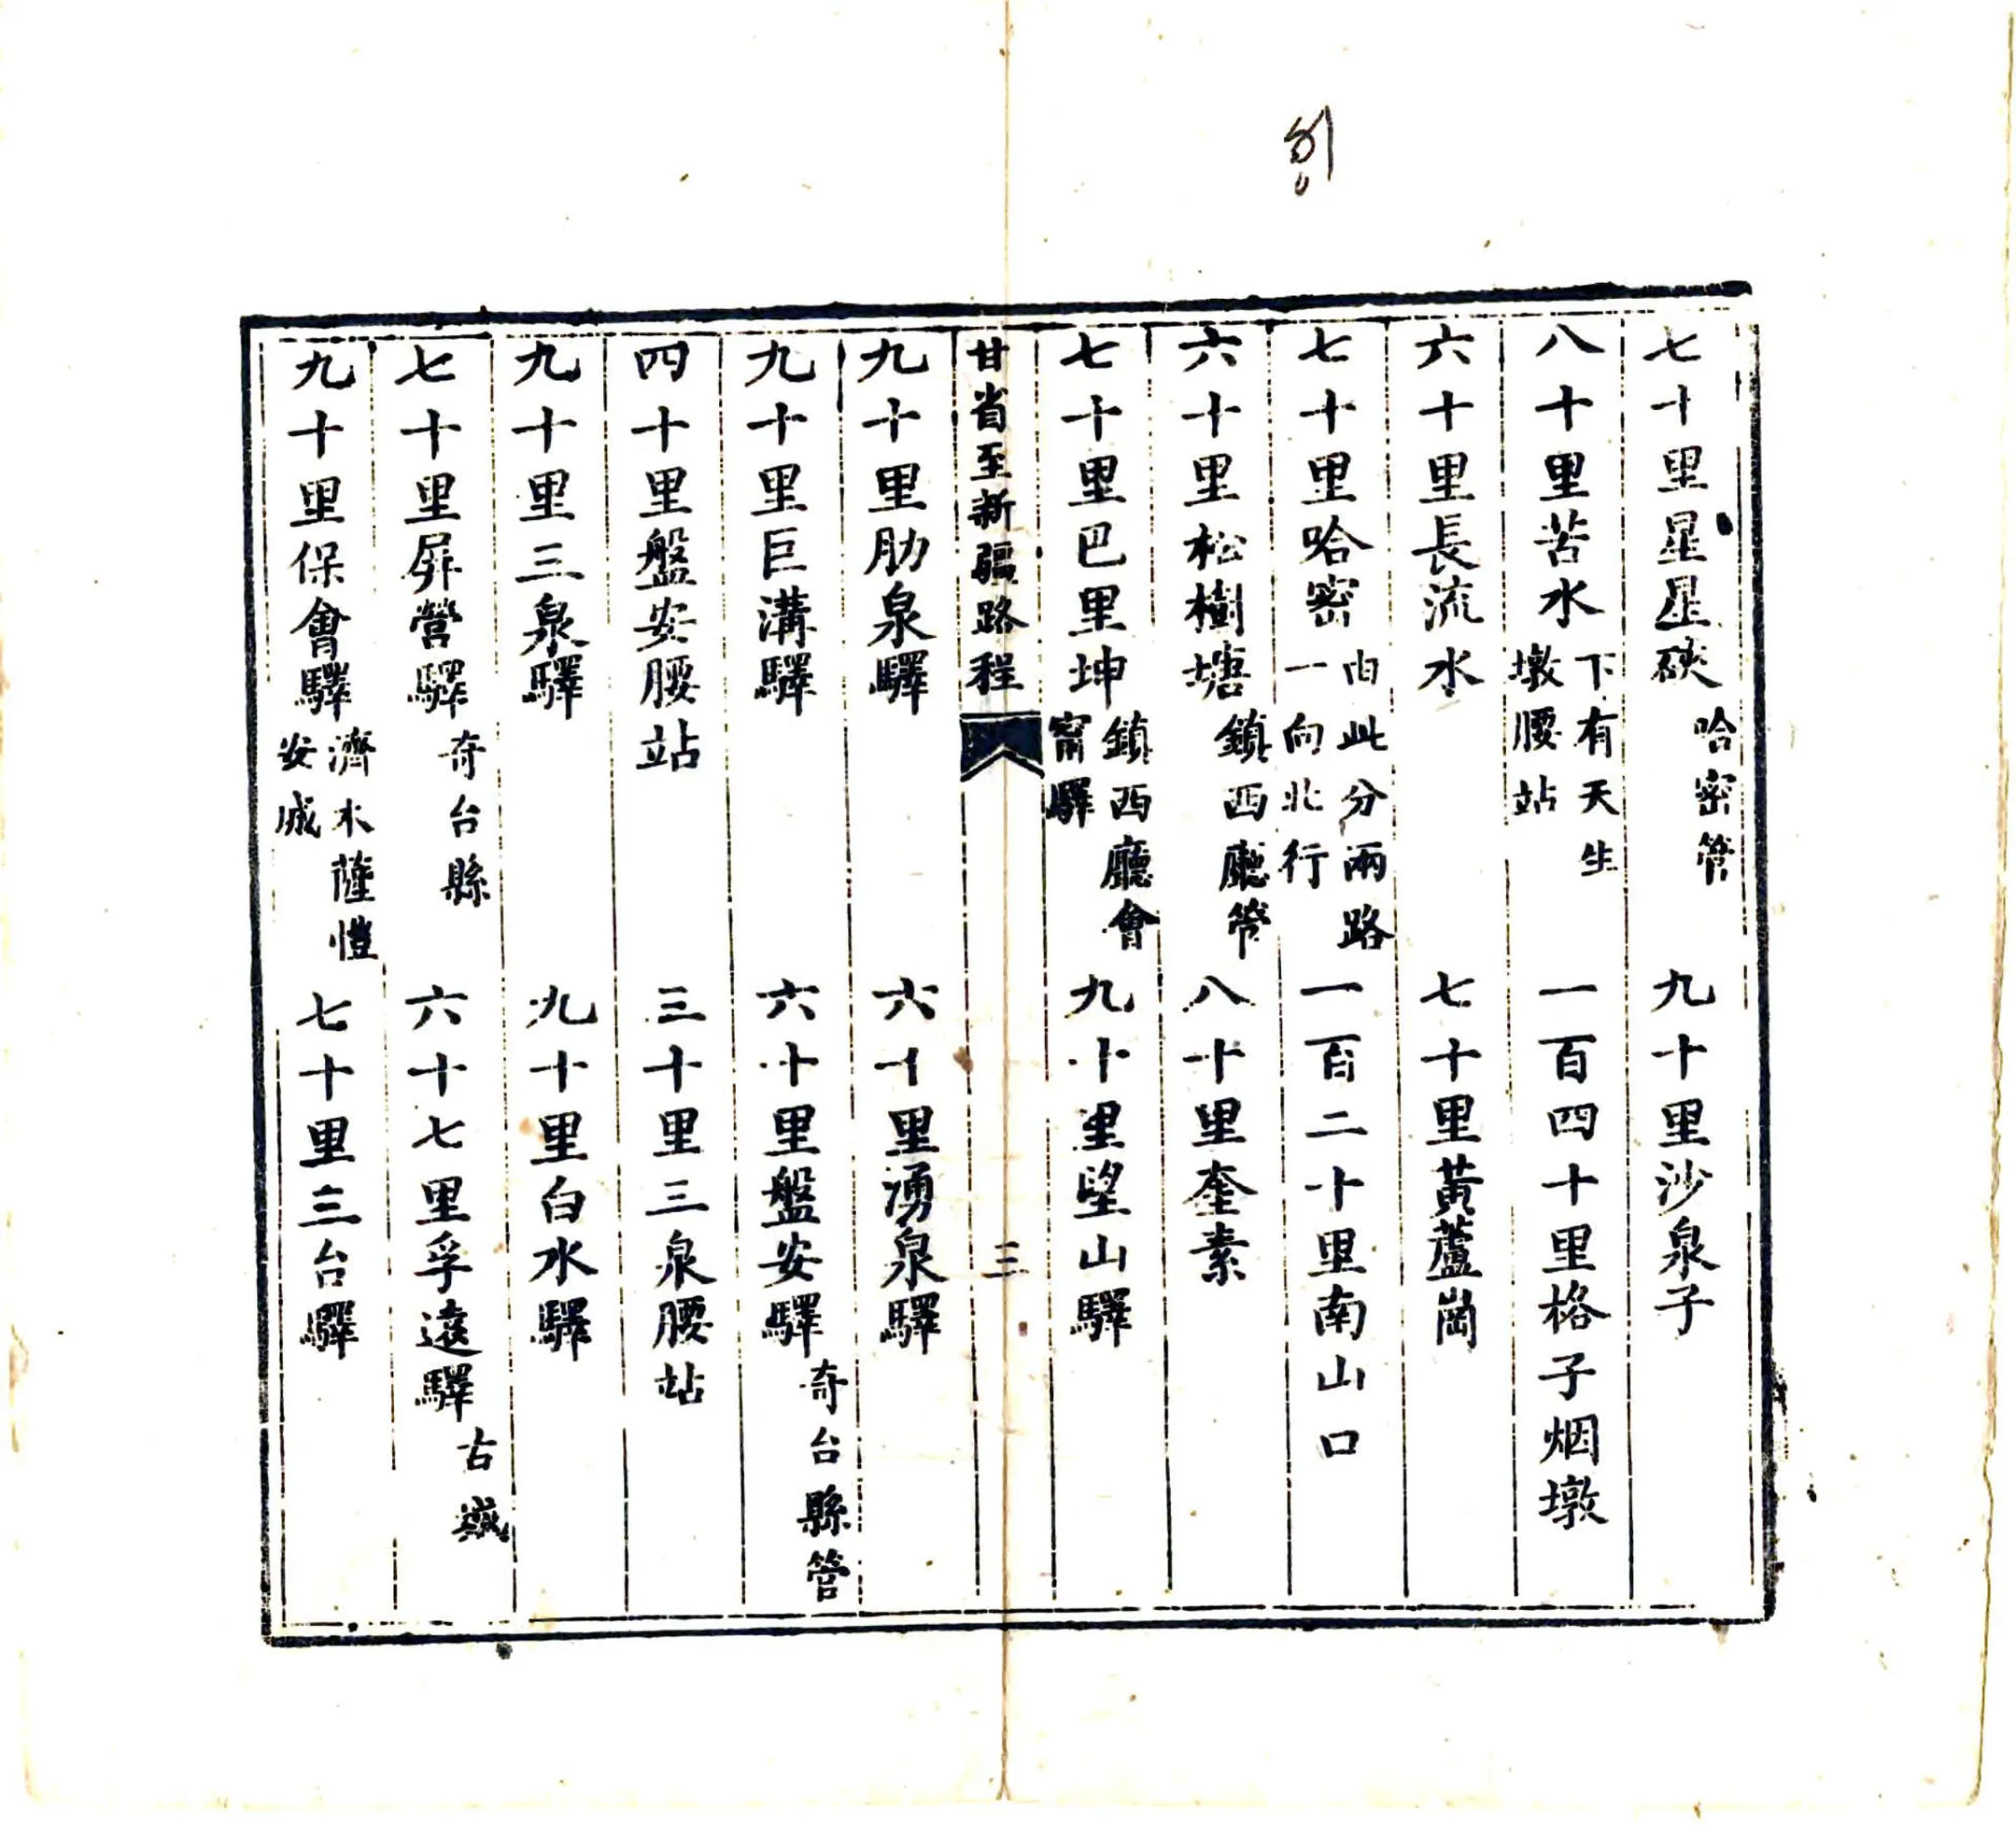 七十里星星硤 哈密管 九十里沙泉子
八十里苦水 下有天生墩腰站 一百四十里格子烟墩
六十里長流水 七十里黃蘆崗
七十里哈密 由此分兩路一向北行 一百二十里南山口
六十里松樹塘 鎮西廳管 八十里奎素
七十里巴里坤 鎮西廳會甯驛 九十里望山驛
甘省至新疆路程 三
九十里肋泉驛 六十里湧泉驛
九十里巨溝驛 六十里盤安驛 奇台縣管
四十里盤安腰站 三十里三泉腰站
九十里三泉驛 九十里白水驛
七十里屏營驛 奇台縣 六十七里孚遠驛 古城
九十里保會驛 濟木薩愷安城 七十里三台驛